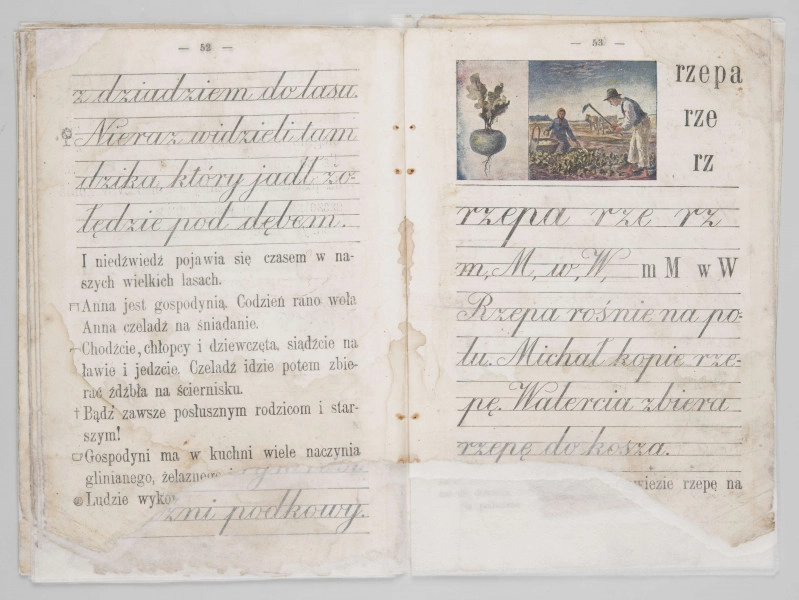 — 52 —
z dziadziem do lasu.
Nieraz widzieli tam
dzika, który jadł żo-
łędzie pod dębem.
I niedźwiedź pojawia się czasem w na-
szych wielkich lasach.
Anna jest gospodynią. Codzień rano woła
Anna czeladź na śniadanie.
Chodźcie, chłopcy i dziewczęta, siądźcie na
ławie i jedzcie. Czeladź idzie potem zbie-
rać źdźbła na ściernisku.
Bądź zawsze posłusznym rodzicom i star-
szym!
Gospodyni ma w kuchni wiele naczynia
glinianego,
Ludzie
podkowy.
— 53 —
rzepa
rze
rz
rzepa rze rz
m, M, w, W, m M w W
Rzepa rośnie na po-
lu. Michał kopie rze-
pę. Walercia zbiera
rzepę do kosza.
rzepę na